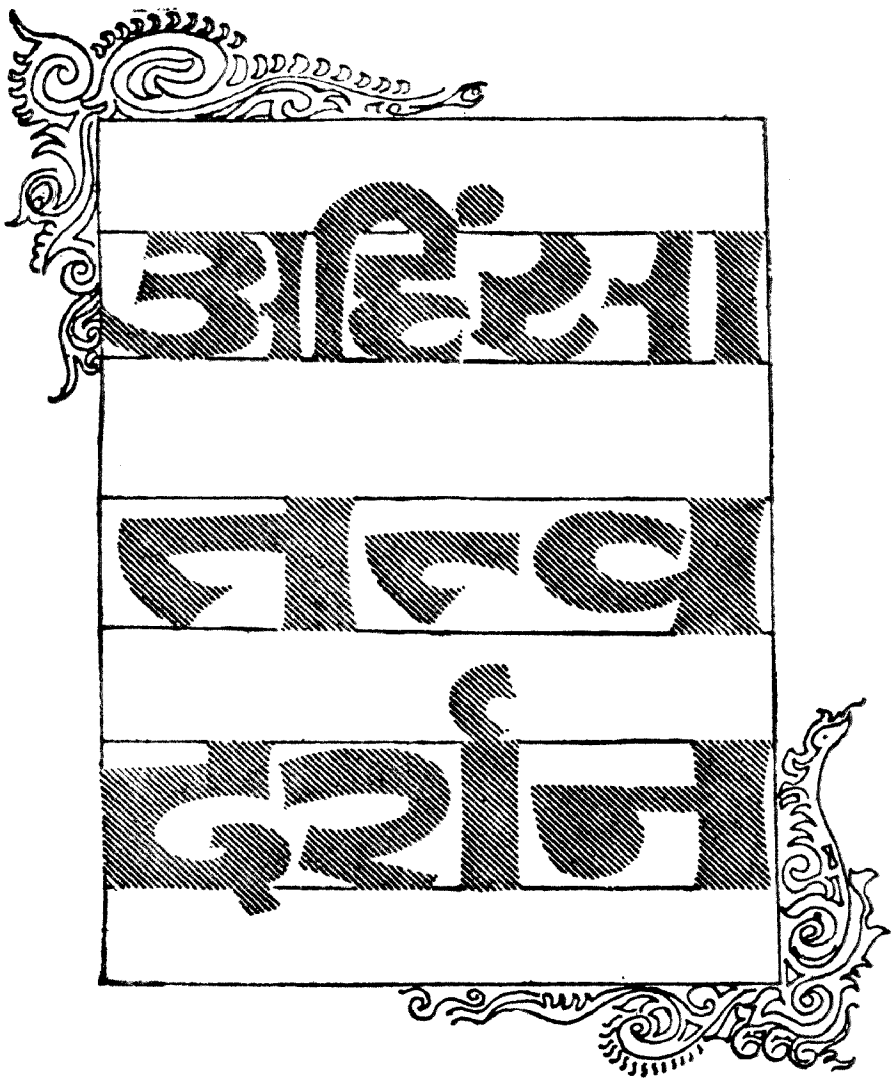 अहिंसा
तत्व
दर्शन